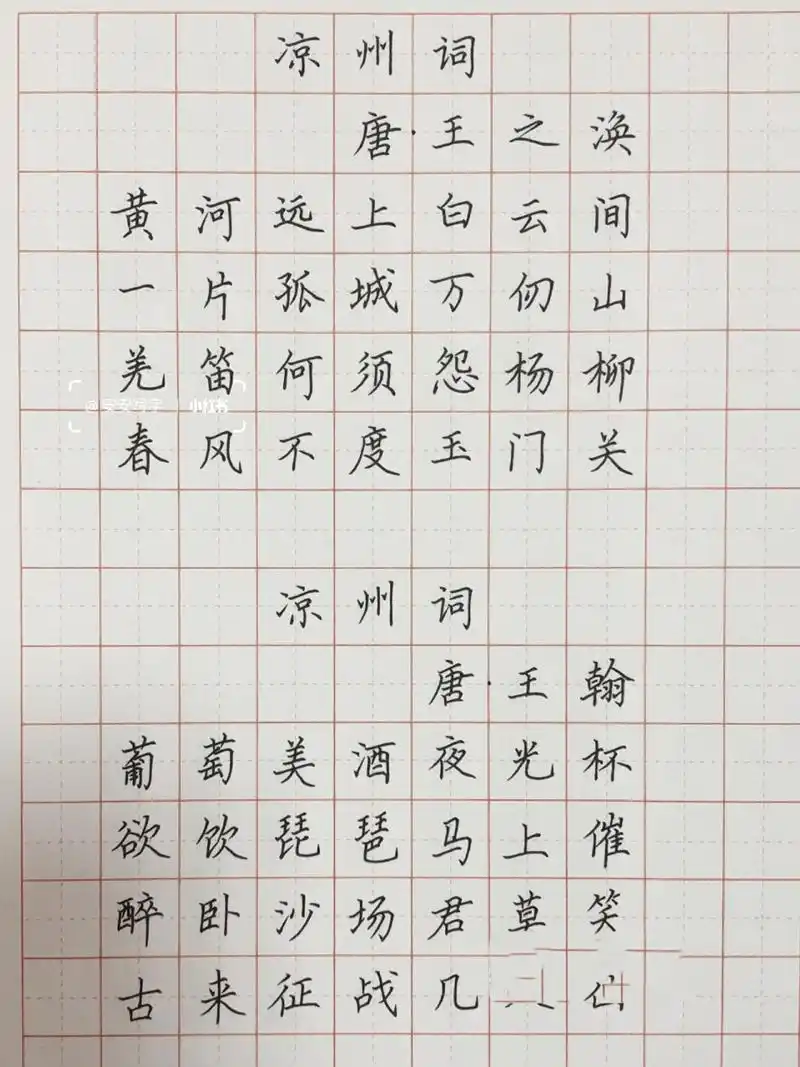 凉州词
唐·王之涣
黄河远上白云间
一片孤城万仞山
羌笛何须怨杨柳
春风不度玉门关
凉州词
唐·王翰
葡萄美酒夜光杯
欲饮琵琶马上催
醉卧沙场君草笑
古来征战几